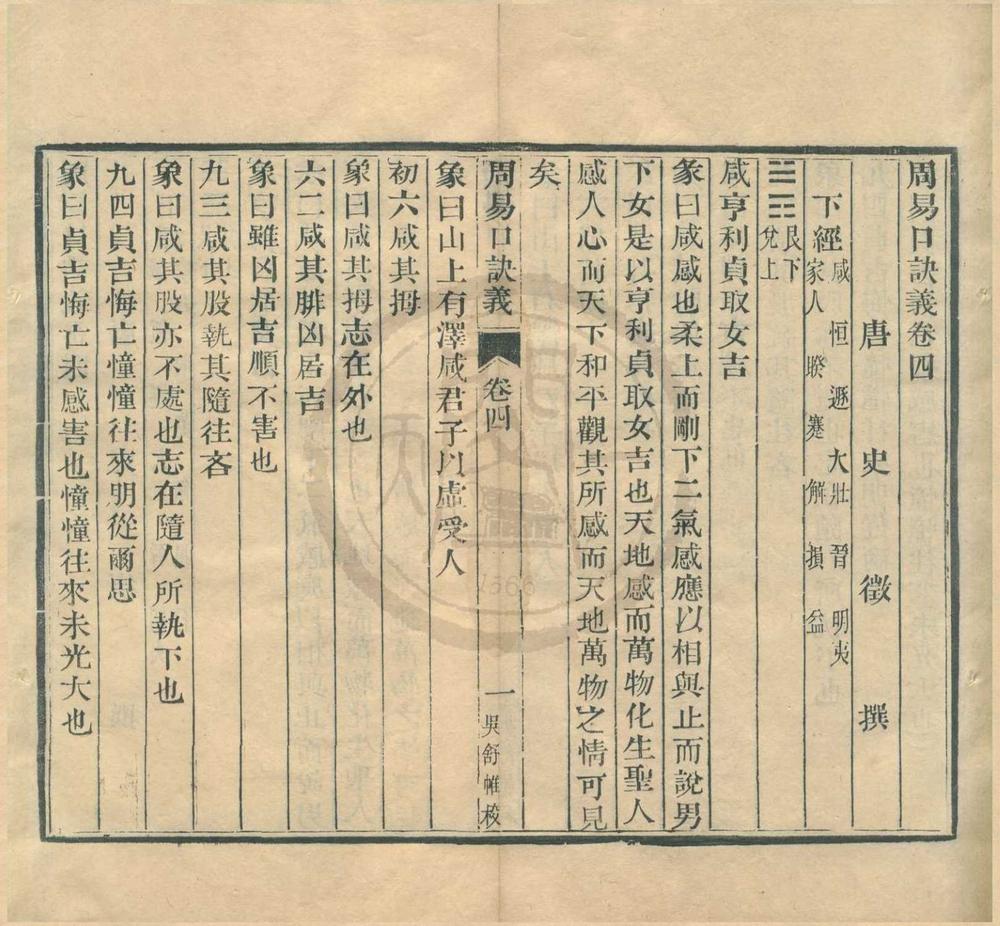 周易口訣義卷四
唐史徵撰
下經咸恒遯大壯晉明夷
家人睽蹇解損益
艮下
兌上
咸亨利貞取女吉
彖曰咸感也柔上而剛下二氣感應以相與止而說男
下女是以亨利貞取女吉也天地感而萬物化生聖人
感人心而天下和平觀其所感而天地萬物之情可見
矣
周易口訣義 卷四 一 吳舒帷校
象曰山上有澤咸君子以虛受人
初六咸其拇
象曰咸其拇志在外也
六二咸其腓凶居吉
象曰雖凶居吉順不害也
九三咸其股執其隨往吝
象曰咸其股亦不處也志在隨人所執下也
九四貞吉悔亡憧憧往來朋從爾思
象曰貞吉悔亡未感害也憧憧往來未光大也
1566